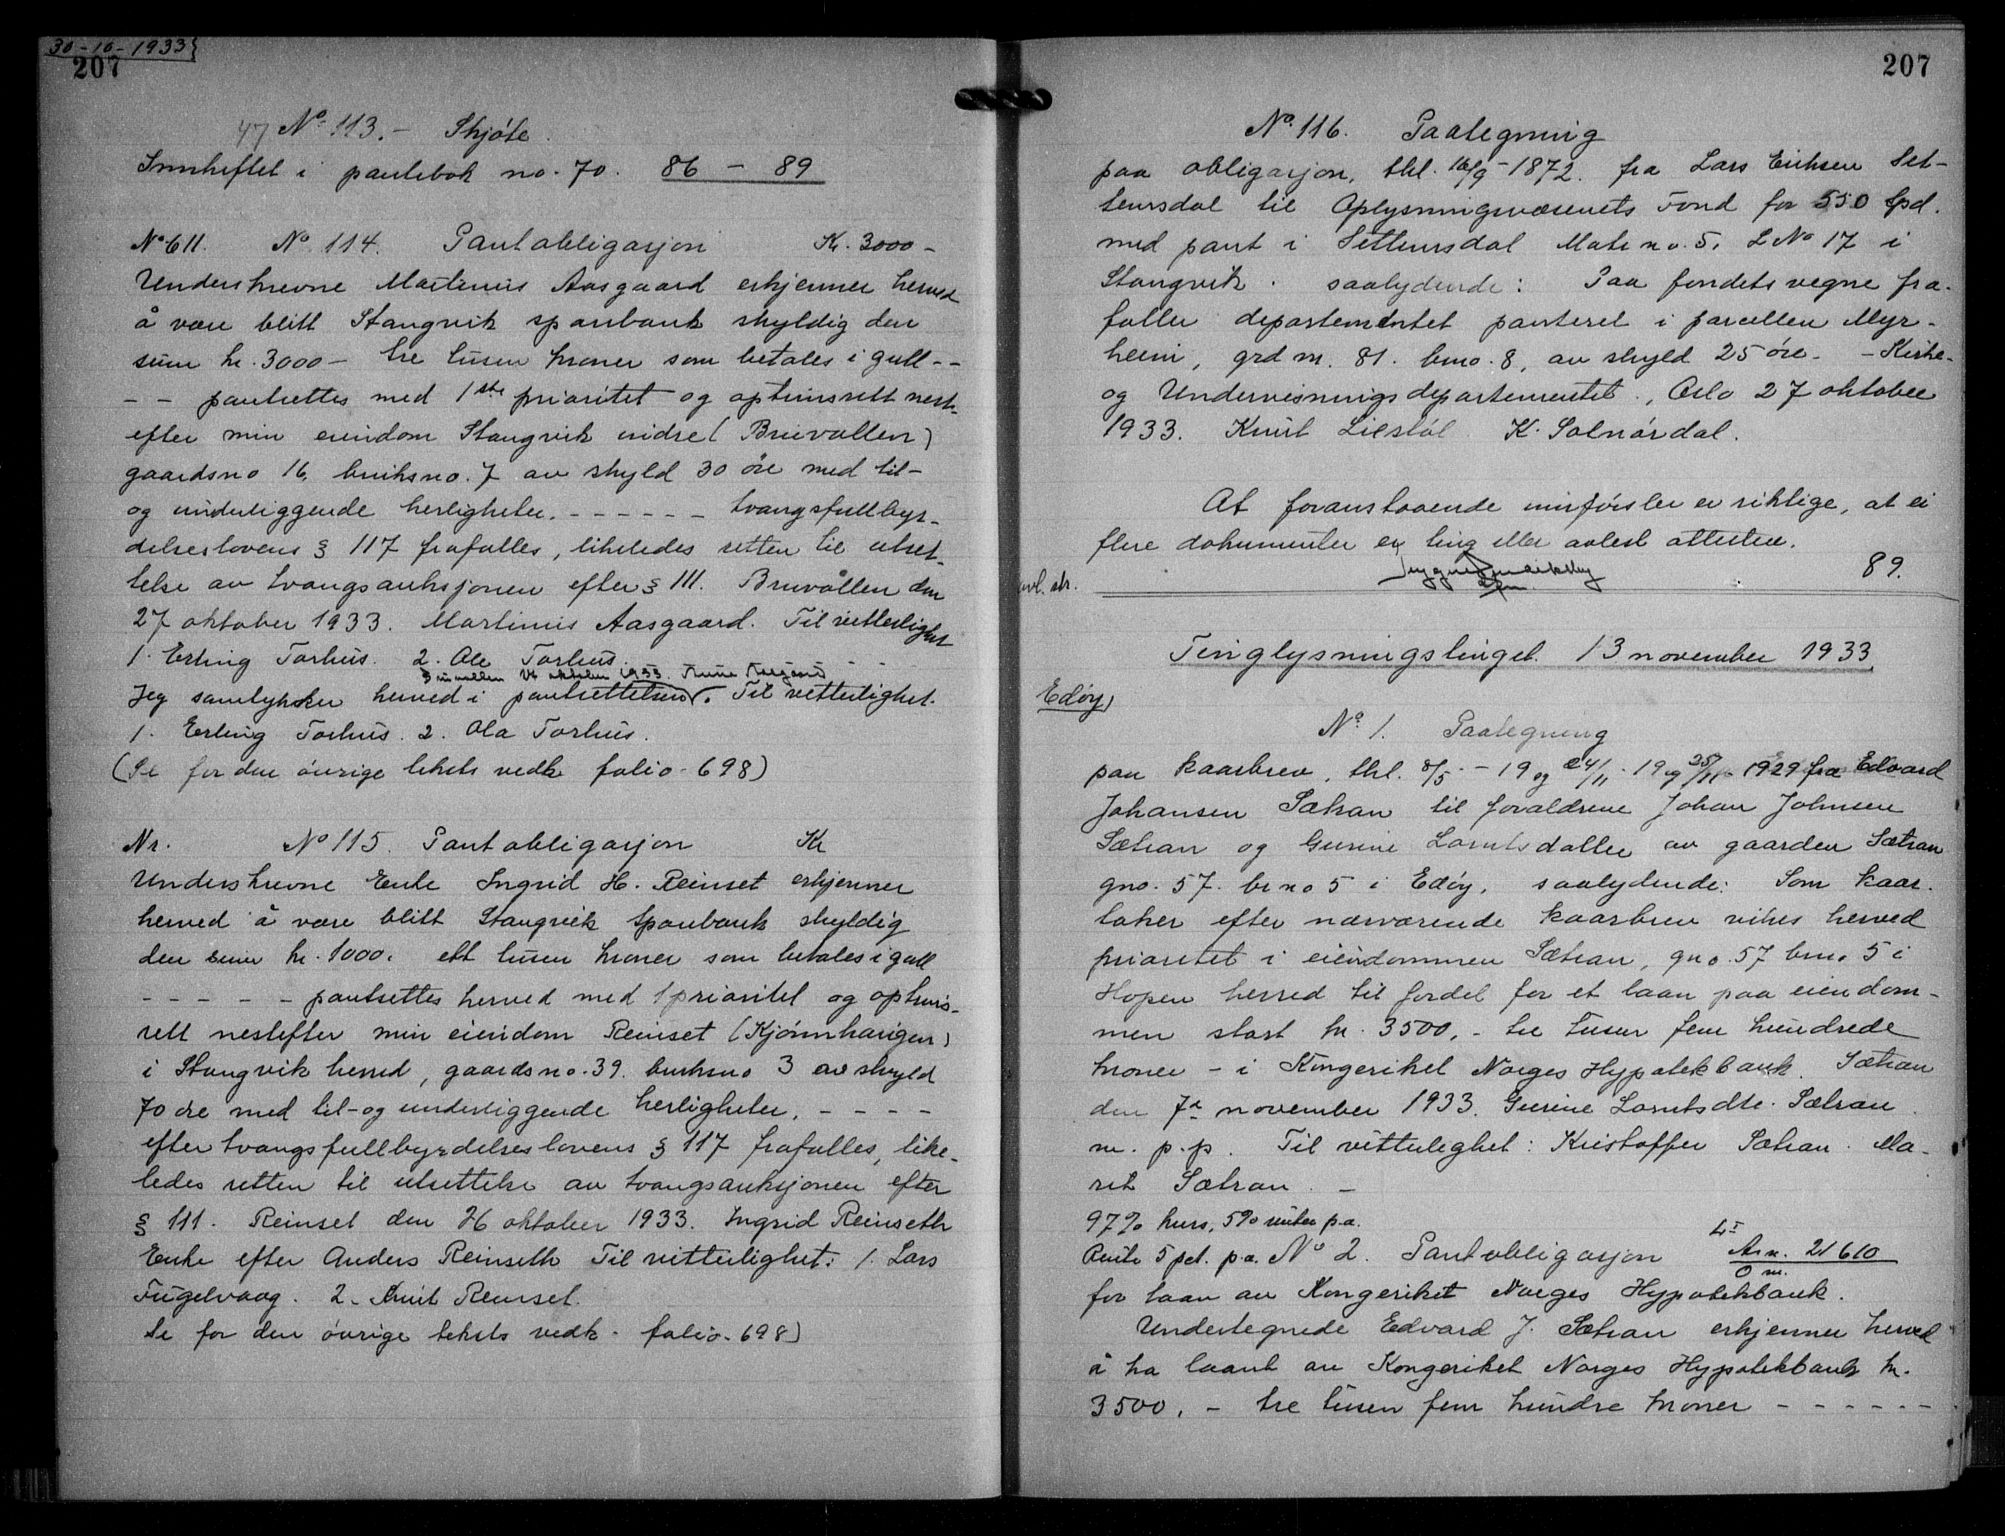 30-10-1933
207
47 No 113.- Skjöte.
Innheftet i pantebok no. 70. 86 - 89
No 611. No 114. Pantobligasjon Kr. 3000-
Underskrevne Martinus Aasgaard erkjenner herved
å være blitt Stangvik sparebank skyldig den
sum kr. 3000- tre tusen kroner som betales i gull--
-- pantsettes med 1ste prioritet og optrinsrett nest-
efter min eiendom Stangvik nidre (Bruvollen)
gaardsno 16, bruksno. 7 av skyld 30 öre med til-
og underliggende herligheter. ------ tvangsfullbyr-
delseslovens § 117 frafalles, likeledes retten til utset-
telse av tvangsauksjonen efter § 111. Bruvollen den
27 oktober 1933. Martinus Aasgaard. Til vitterlighet
1. Erling Torhus. 2. Ole Torhus. - -
Bruvollen oktober 1933.
Jeg samtykker herved i pantsettelsen. Til vitterlighet.
1. Erling Torhus. 2. Ola Torhus.
(Se for den övrige teksts vedk. folio-698)
Nr. No 115. Pantobligasjon Kr
Underskrevne Enke Ingrid H. Reinset erkjenner
herved å være blitt Stangvik Sparebank skyldig
den sum kr. 1000. ett tusen kroner som betales i gull
- - - - - pantsettes herved med 1 prioritet og optrins-
rett nestefter min eiendom Reinset (Kjönnhaugen)
i Stangvik herred, gaardsno. 39. bruksno 3 av skyld
70 öre med til- og underliggende herligheter. - - - -
efter tvangsfullbyrdelseslovens § 117 frafalles, like-
ledes retten til utsettelse av tvangsauksjonen efter
§ 111. Reinset den 26 oktober 1933. Ingrid Reinseth
Enke efter Anders Reinseth Til vitterlighet: 1. Lars
Fugelvaag. 2. Knut Reinset.
Se for den övrige teksts vedk. folio-698)
207
No. 116. Paategning
paa obligasjon, thl. 16/9-1872. fra Lars Eriksen Set-
temsdal til Oplysningsvæsenets Fond for 550 Spd.
med pant i Settemsdal Mate no. 5. LNo 17 i
Stangvik. saalydende: Paa fondets vegne fra-
faller departementet panteret i parcellen Myr-
heim, grd nr. 81. brno. 8, av skyld 25 öre. - Kirke-
og Undervisningsdepartementet., Oslo 27 oktober
1933. Knut Liestöl K. Solnördal.
At foranstaaende innförsler er riktige, at ei
flere dokumenter er ting eller avlest attester.
89.
avl. str.
Tinglysningstinget. 13 november 1933
Edöy)
No. 1. Paategning
paa kaarbrev, thl. 8/5 - 19 og 24/11 - 19 og 25/11 - 1929 fra Edvard
Johansen Sætran til forældrene Johan Johnsen
Sætran og Gurine Lorntsdatter av gaarden Sætran
gno. 57. brno 5 i Edöy, saalydende: Som kaar-
taker efter nærværende kaarbrev vikes herved
prioritet i eiendommen Sætran, gno. 57 brno 5 i
Hopen herred til fordel for et laan paa eiendom-
men stort kr. 3500,- tre tusen fem hundrede
kroner - i Kongeriket Norges Hypotekbank. Sætran
den 7de november 1933. Gurine Lorntsdtr. Sætran
m. p. p. Til vitterlighet: Kristoffer Sætran. Ma-
rit Sætran. -
97% kurs, 5% renter p.a.
Rente 5 pct. p.a. No 2. Pantobligasjon Ar n. 21610
for laan av Kongeriket Norges Hypotekbank.
Undertegnede Edvard J. Sætran erkjenner herved
å ha laant av Kongeriket Norges Hypotekbank kr.
3500,- tre tusen fem hundre kroner - - - - - -